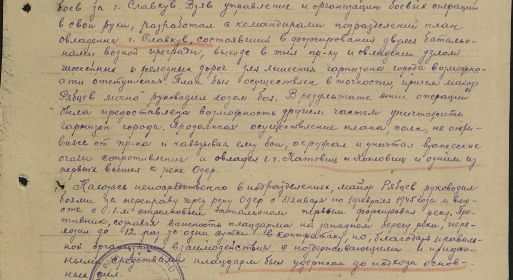 боев за г. Славкув. Взяв управление и организацию боевых операций
в свои руки, разработал с командирами подразделений план
овладения г. Славкув, состоявший в форсировании двумя батальо-
нами водной преграды, выходе в тыл пр-ку и овладении узлом
шоссейных и железных дорог для лишения гарнизона города возможно-
сти отступления. План был осуществлен в точности, причем майор
Рявцев лично руководил ходом боя. В результате этой операции
была предоставлена возможность другим частям уничтожить
гарнизон города. Продолжая осуществление плана, полк, не отры-
ваясь от пр-ка и навязывая ему бои, окружая и уничтожая вражеские
очаги сопротивления и овладел г.г. Катовиц и и одним из
первых вышел к реке Одер.
Находясь непосредственно в подразделениях, майор Рявцев руководил
боями за переправу через реку Одер с 31 января на 1 февраля 1945 года и вме-
сте с 1-м стрелковым батальоном первым форсировал реку. Про-
тивник, сознавая важность плацдарма на западном берегу реки, пере-
ходил до 12 раз в день в контратаки, но, благодаря правиль-
ной организации взаимодействия с поддерживающими и придан-
ными средствами плацдарм был удержан до подхода основ-
ных сил.